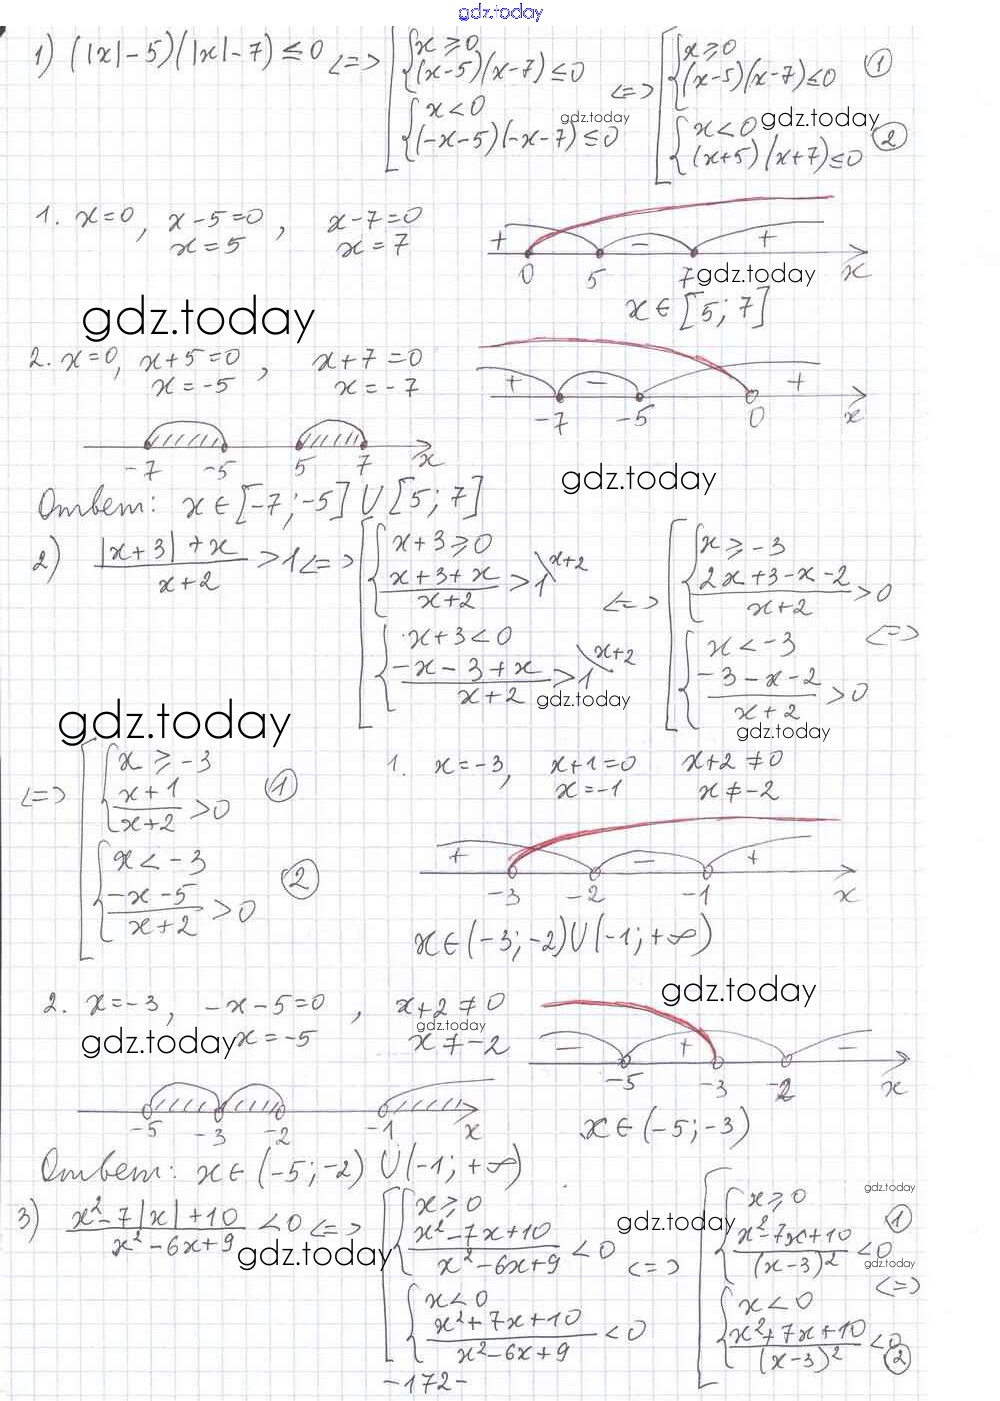 gdz.today
1) (|x|-5)(|x|-7) ≤ 0 <=> [ { x ≥ 0 (x-5)(x-7) ≤ 0 { x < 0 (-x-5)(-x-7) ≤ 0 <=> [ { x ≥ 0 (x-5)(x-7) ≤ 0 ① { x < 0 (x+5)(x+7) ≤ 0 ②
gdz.today
gdz.today
1. x=0, x-5=0, x-7=0
x=5 x=7
+ - +
0 5 7 x
gdz.today
x ∈ [5; 7]
gdz.today
2. x=0, x+5=0, x+7=0
x=-5 x=-7
+ - +
-7 -5 0 x
-7 -5 5 7 x
gdz.today
Ответ: x ∈ [-7; -5] U [5; 7]
2) (|x+3|+x)/(x+2) > 1 <=> [ { x+3 ≥ 0 (x+3+x)/(x+2) > 1\x+2 { x+3 < 0 (-x-3+x)/(x+2) > 1\x+2 <=> [ { x ≥ -3 (2x+3-x-2)/(x+2) > 0 { x < -3 (-3-x-2)/(x+2) > 0 <=>
gdz.today
gdz.today
gdz.today
<=> [ { x ≥ -3 (x+1)/(x+2) > 0 ① { x < -3 (-x-5)/(x+2) > 0 ②
1. x=-3, x+1=0 x+2 ≠ 0
x=-1 x ≠ -2
+ - +
-3 -2 -1 x
x ∈ (-3; -2) U (-1; +∞)
gdz.today
2. x=-3, -x-5=0, x+2 ≠ 0
gdz.today
gdz.today
x=-5 x ≠ -2
- + -
-5 -3 -2 x
-5 -3 -2 -1 x
x ∈ (-5; -3)
Ответ: x ∈ (-5; -2) U (-1; +∞)
3) (x²-7|x|+10)/(x²-6x+9) < 0 <=> [ { x ≥ 0 (x²-7x+10)/(x²-6x+9) < 0 { x < 0 (x²+7x+10)/(x²-6x+9) < 0 <=> [ { x ≥ 0 (x²-7x+10)/(x-3)² < 0 ① { x < 0 (x²+7x+10)/(x-3)² < 0 ② <=>
gdz.today
gdz.today
gdz.today
gdz.today
-172-